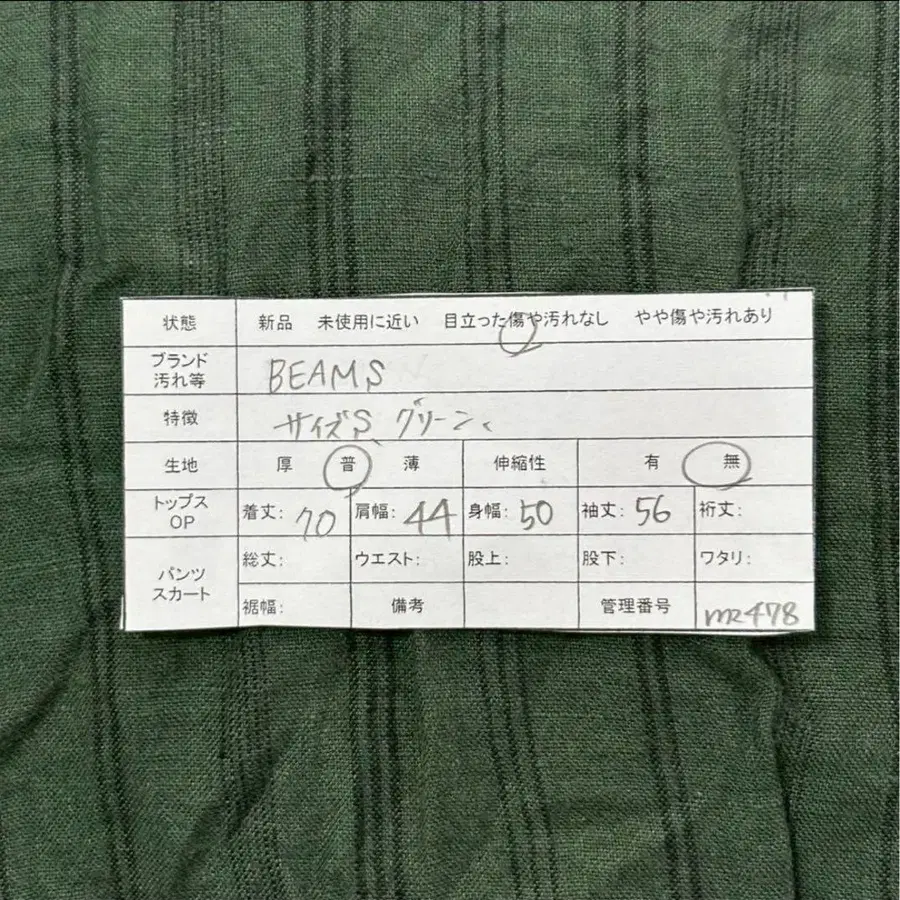 状態 新品 未使用に近い 目立った傷や汚れなし やや傷や汚れあり
ブランド
汚れ等 BEAMS
特徴 サイズS、グリーン、
生地 厚 普 薄 伸縮性 有 無
トップス
OP 着丈: 70 肩幅: 44 身幅: 50 袖丈: 56 裄丈:
パンツ
スカート 総丈: ウエスト: 股上: 股下: ワタリ:
裾幅: 備考 管理番号 mr478